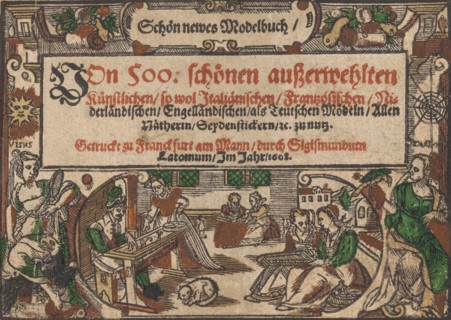 Schön newes Modelbuch /
VOn 500. schönen außerwehlten
Künstlichen / so wol Italiänischen / Frantzösischen / Ni-
derländischen / Engelländischen / als Teutschen Mödeln / Allen
Näherin / Seydenstickern / ꝛc. zu nutz.
Getruckt zu Franckfurt am Mayn / durch Sigismundum
Latomum / Im Jahr / 1608.
VISUS